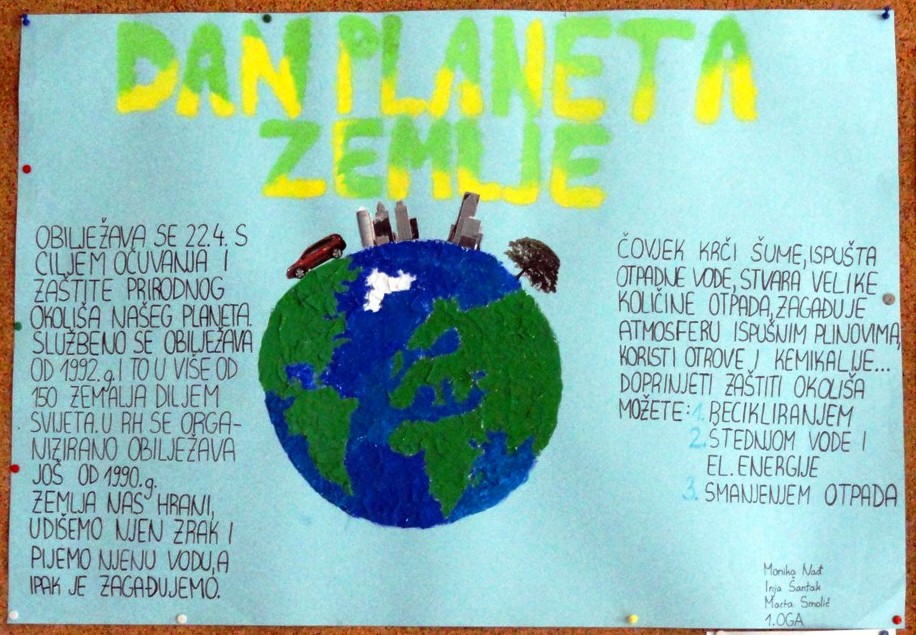 DAN PLANETA
ZEMLJE
OBILJEŽAVA SE 22.4. S
CILJEM OČUVANJA I
ZAŠTITE PRIRODNOG
OKOLIŠA NAŠEG PLANETA.
SLUŽBENO SE OBILJEŽAVA
OD 1992.g. I TO U VIŠE OD
150 ZEMALJA DILJEM
SVIJETA. U RH SE ORGA-
NIZIRANO OBILJEŽAVA
JOŠ OD 1990.g.
ZEMLJA NAS HRANI,
UDIŠEMO NJEN ZRAK I
PIJEMO NJENU VODU, A
IPAK JE ZAGAĐUJEMO.
ČOVJEK KRČI ŠUME, ISPUŠTA
OTPADNE VODE, STVARA VELIKE
KOLIČINE OTPADA, ZAGAĐUJE
ATMOSFERU ISPUŠNIM PLINOVIMA,
KORISTI OTROVE I KEMIKALIJE...
DOPRINJETI ZAŠTITI OKOLIŠA
MOŽETE: 1. RECIKLIRANJEM
2. ŠTEDNJOM VODE I
EL. ENERGIJE
3. SMANJENJEM OTPADA
Monika Nađ
Inja Šantak
Marta Smolić
1.OGA